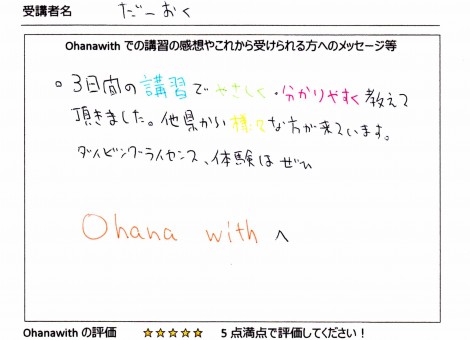 受講者名 だーおく
Ohanawith での講習の感想やこれから受けられる方へのメッセージ等
○ 3日間の講習でやさしく・分かりやすく教えて
頂きました。他県から様々な方が来ています。
ダイビングライセンス、体験はぜひ
Ohana with へ
Ohanawith の評価 ☆☆☆☆☆ 5 点満点で評価してください！